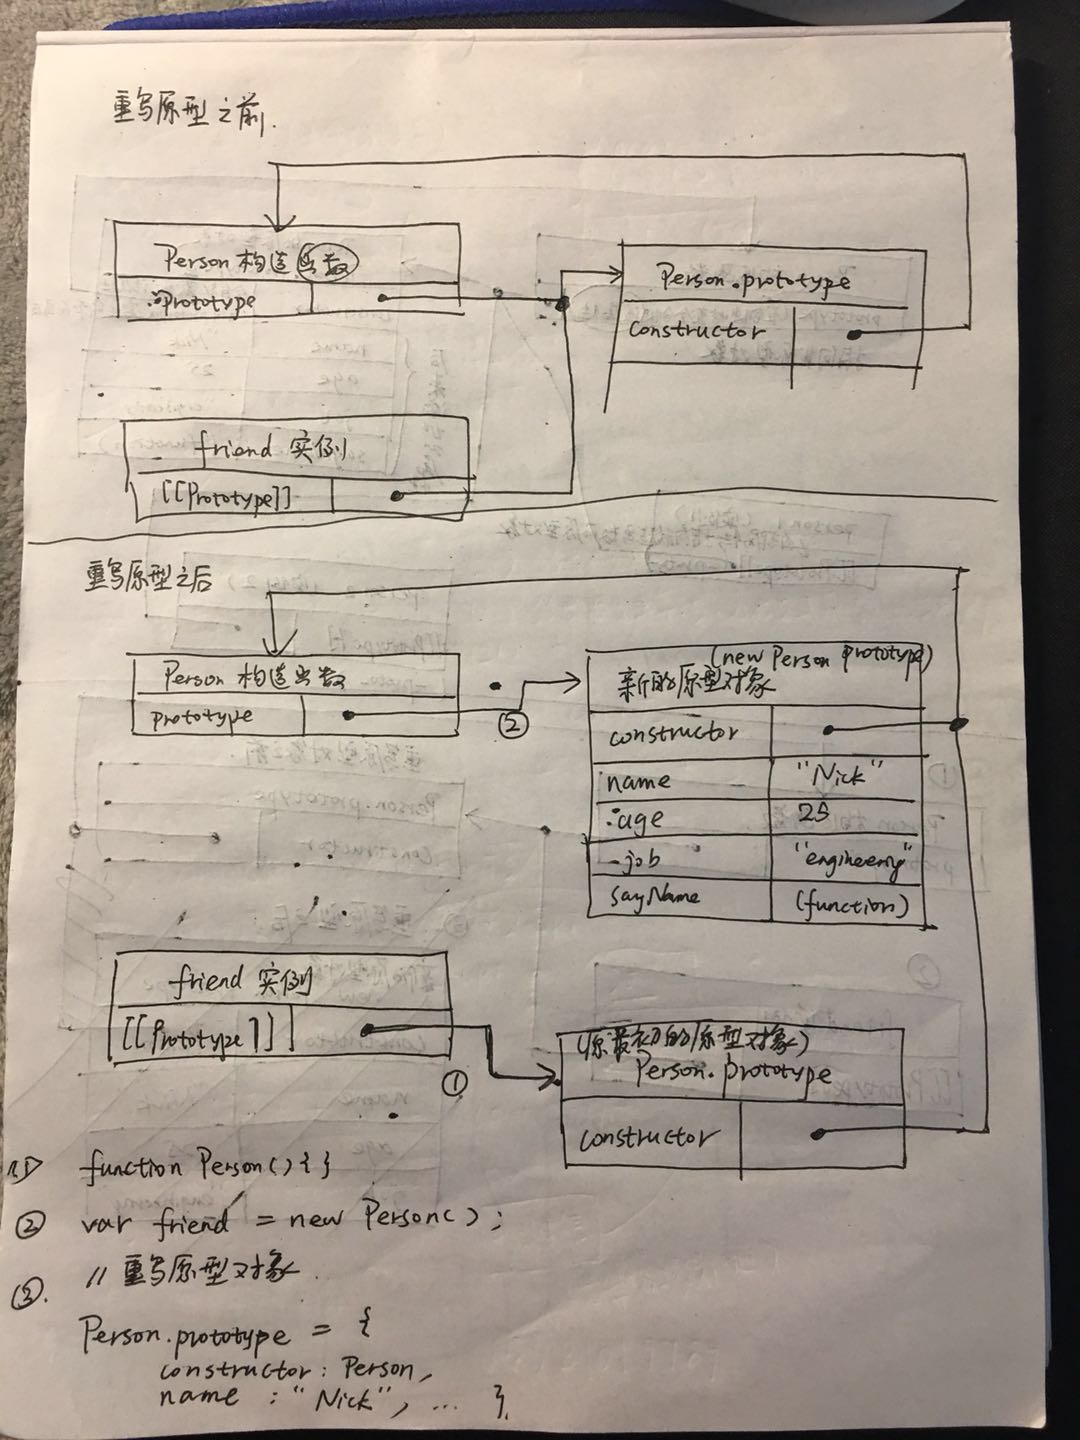 重写原型之前.
Person 构造函数
prototype
Person.prototype
constructor
friend 实例
[[Prototype]]
重写原型之后
Person 构造函数
prototype
②
(new Person prototype)
新的原型对象
constructor
name "Nick"
age 25
job
sayName (function)
friend 实例
[[Prototype]]
①
(原最初的原型对象)
Person.prototype
constructor
function Person(){}
② var friend = new Person();
③. // 重写原型对象.
Person.prototype = {
constructor: Person,
name : "Nick", ... }.